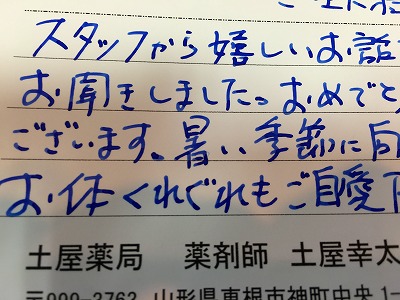 スタッフから嬉しいお話
お聞きしました。おめでと
ございます。暑い季節に向
お体くれぐれもご自愛下
土屋薬局 薬剤師 土屋幸太
〒999-3763 山形県東根市神町中央1-